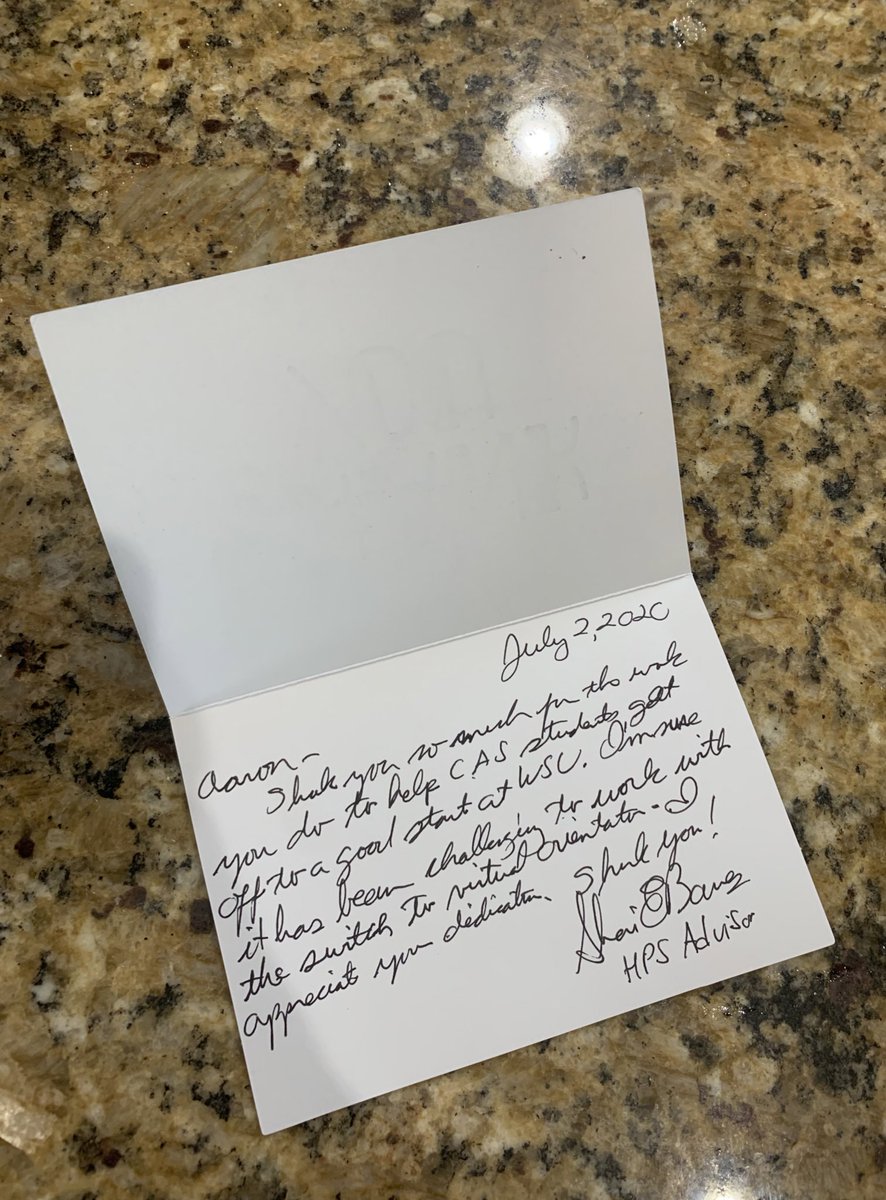 July 2, 2020
Aaron-
Thank you so much for the work
you do to help CAS students get
off to a good start at WSU. I'm sure
it has been challenging to work with
the switch to virtual orientation. I
appreciate your dedication. Thank you!
HPS Advisor